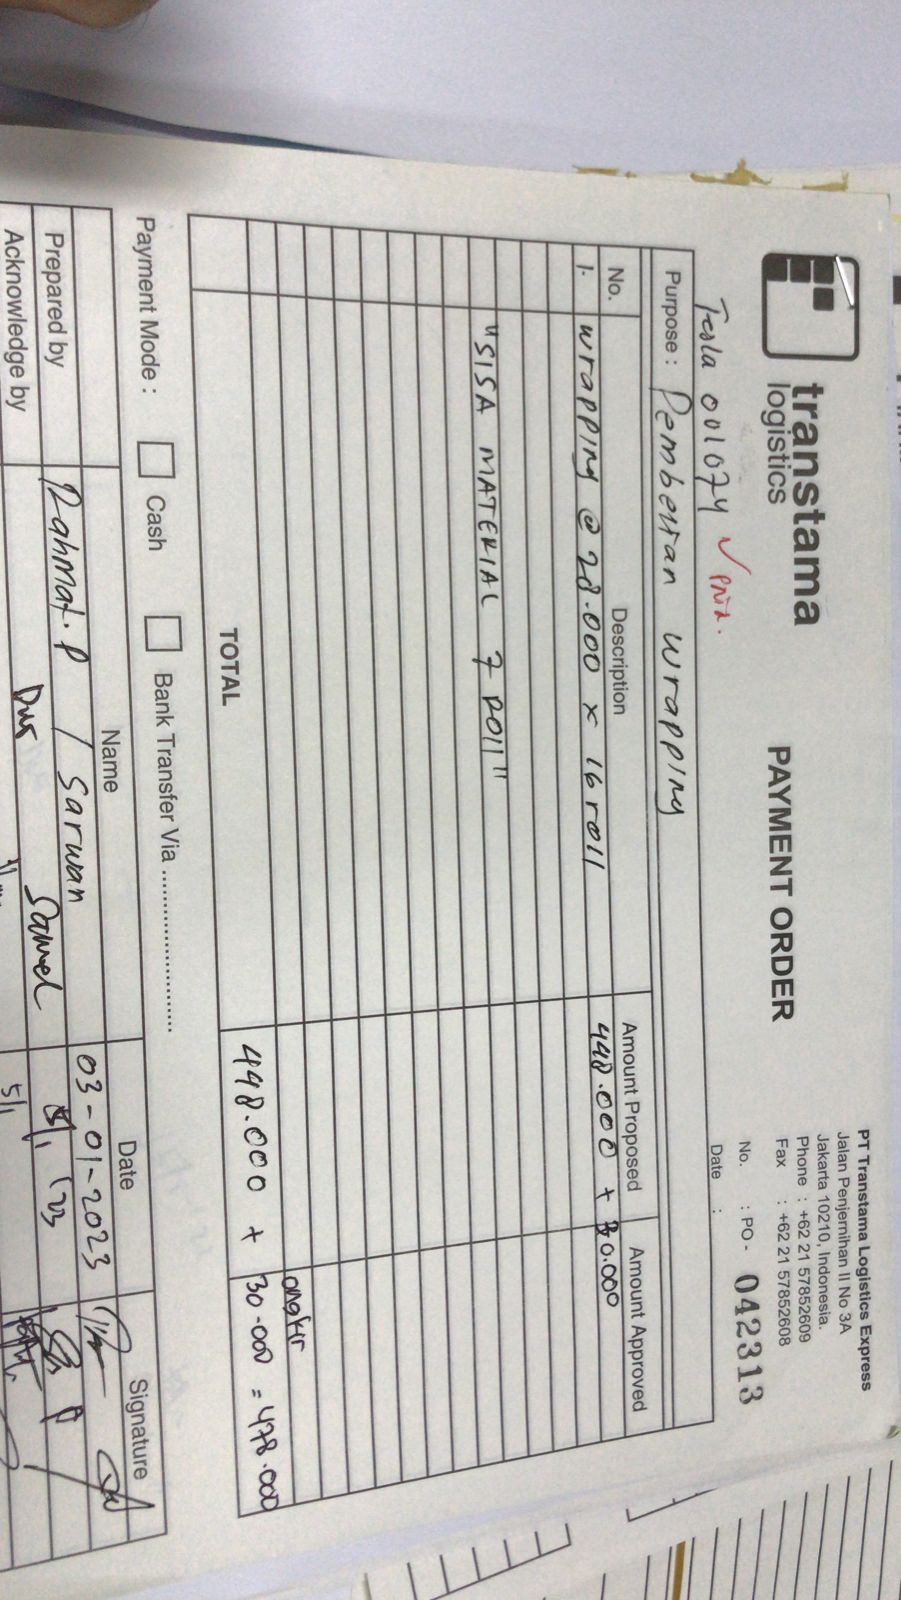 transtama
logistics
PAYMENT ORDER
PT Transtama Logistics Express
Jalan Penjernihan II No 3A
Jakarta 10210, Indonesia.
Phone : +62 21 57852609
Fax : +62 21 57852608
No. : PO - 042313
Date :
Tesla 001074 ✓
Purpose : Pembelian wrapping
No. Description Amount Proposed Amount Approved
1. wrapping @ 28.000 x 16 roll 448.000 + 30.000
"SISA MATERIAL 7 ROLL"
ongkir
TOTAL 448.000 + 30.000 = 478.000
Payment Mode : Cash Bank Transfer Via ........................
Name Date Signature
Prepared by Rahmat. P / Sarwan 03-01-2023
Acknowledge by Samel
5/1